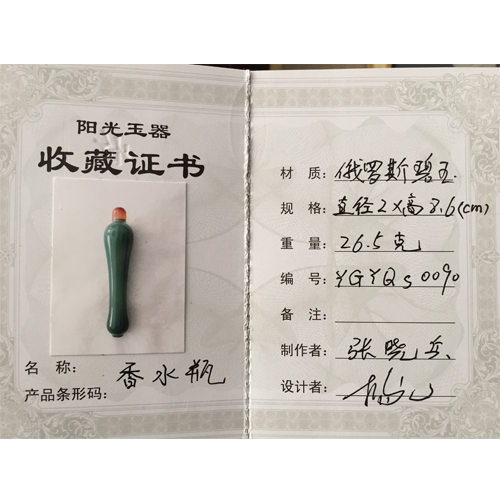 阳光玉器
收藏证书
名 称: 香水瓶
产品条形码:
材 质: 俄罗斯碧玉
规 格: 直径2×高8.6(cm)
重 量: 26.5克
编 号: YGYQS0090
备 注:
制作者: 张晓兵
设计者: